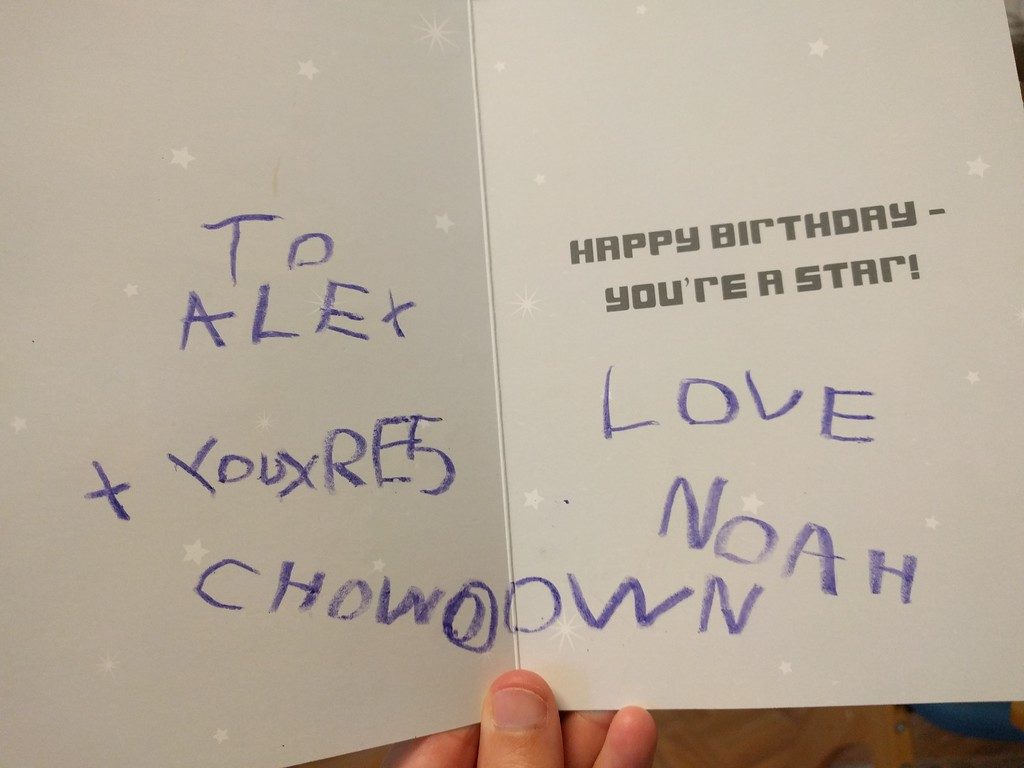 TO
ALEX
+ YOUXRE5
CHOWDOWN
HAPPY BIRTHDAY -
YOU'RE A STAR!
LOVE
NOAH